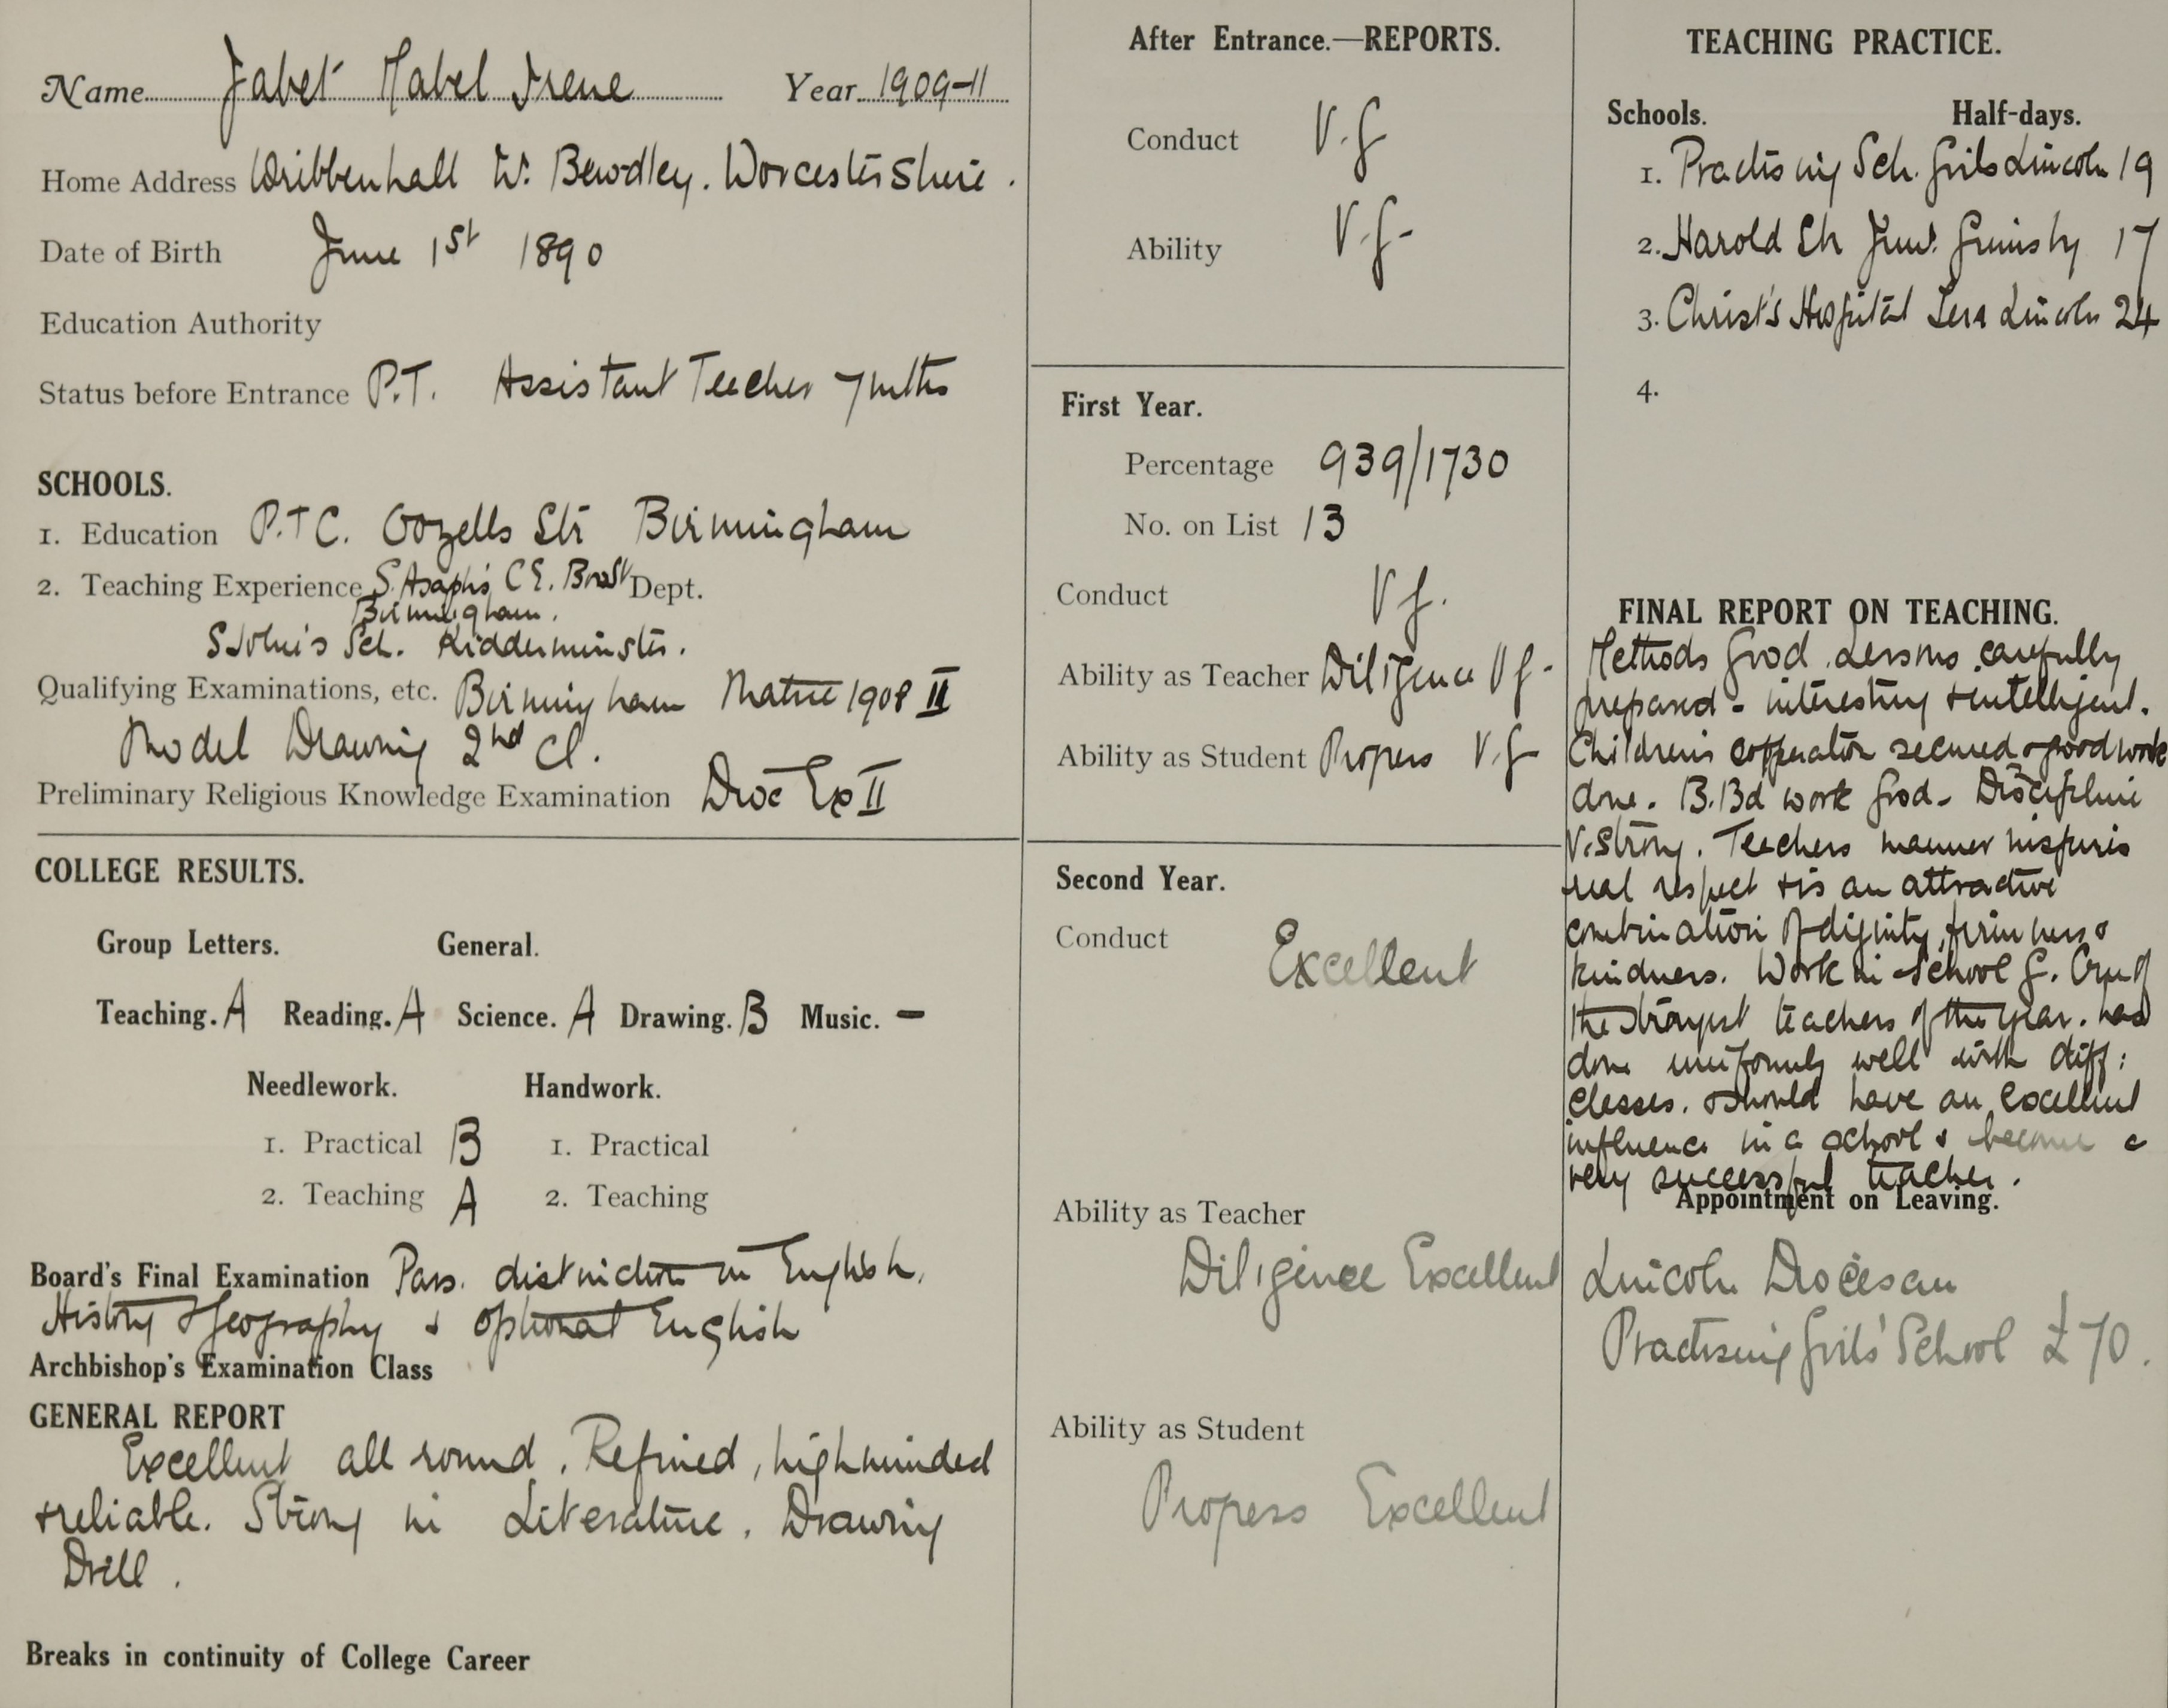 Name Jabet Mabel Irene Year 1909-11
Home Address Wribbenhall Nr. Bewdley. Worcestershire.
Date of Birth June 1st 1890
Education Authority
Status before Entrance P.T. Assistant Teacher 7 mths
SCHOOLS.
1. Education P.T.C. Oozells Str Birmingham
2. Teaching Experience S. Asaph's C.E. Dept.
Birmingham.
S John's Sch. Kidderminster.
Qualifying Examinations, etc. Birmingham Matric 1908 II
Model Drawing 2nd Cl.
Preliminary Religious Knowledge Examination Dioc Ex II
COLLEGE RESULTS.
Group Letters. General.
Teaching. A Reading. A Science. A Drawing. B Music. —
Needlework. Handwork.
1. Practical B 1. Practical
2. Teaching A 2. Teaching
Board's Final Examination Pass. distinction in English,
History & Geography & optional English
Archbishop's Examination Class
GENERAL REPORT
Excellent all round. Refined, highminded
& reliable. Strong in Literature. Drawing
Drill.
Breaks in continuity of College Career
After Entrance.—REPORTS.
Conduct V.g
Ability V.g-
First Year.
Percentage 939/1730
No. on List 13
Conduct V g.
Ability as Teacher Diligence V g-
Ability as Student Progress V.g
Second Year.
Conduct Excellent
Ability as Teacher
Diligence Excellent
Ability as Student
Progress Excellent
TEACHING PRACTICE.
Schools. Half-days.
1. Practising Sch. Girls Lincoln 19
2. Harold Str Grimsby 17
3. Christ's Hospital Terr Lincoln 24
4.
FINAL REPORT ON TEACHING.
Methods good. Lessons carefully
prepared - interesting & intelligent.
Children's cooperation secured & good work
done. B.Bd work good - Discipline
V. Strong. Teachers manner inspires
real respect & is an attractive
combination of dignity, firmness &
kindness. Work in School g. One of
the strongest teachers of the year. has
done uniformly well with diff:
classes. & should have an excellent
influence in a school & become a
very successful teacher.
Appointment on Leaving.
Lincoln Diocesan
Practising Girls' School £70.